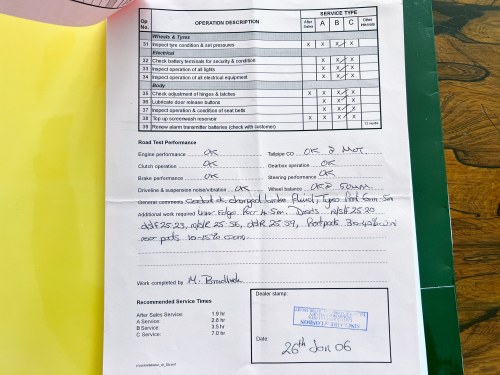 SERVICE TYPE
Op No. OPERATION DESCRIPTION After Sales A B C Other Intervals
Wheels & Tyres
31 Inspect tyre condition & set pressures X X X X
Electrical
32 Check battery terminals for security & condition X X X
33 Inspect operation of all lights X X X
34 Inspect operation of all electrical equipment X X X
Body
35 Check adjustment of hinges & latches X X X X
36 Lubricate door release buttons X X X
37 Inspect operation & condition of seat belts X X X
38 Top up screenwash reservoir X X X X
39 Renew alarm transmitter batteries (check with customer) 12 months
Road Test Performance
Engine performance OK Tailpipe CO OK MOT
Clutch operation OK Gearbox operation OK
Brake performance OK Steering performance OK
Driveline & suspension noise/vibration OK Wheel balance OK
General comments Fluid, Tyres Front 5m
Additional work required Edge, 5m. Discs
25.23, 25.56, 30-40%
rear pads 10-15%
Work completed by M.
Recommended Service Times
After Sales Service: 1.9 hr
A Service: 2.8 hr
B Service: 3.5 hr
C Service: 7.0 hr
Dealer stamp:
Date:
26th Jan 06